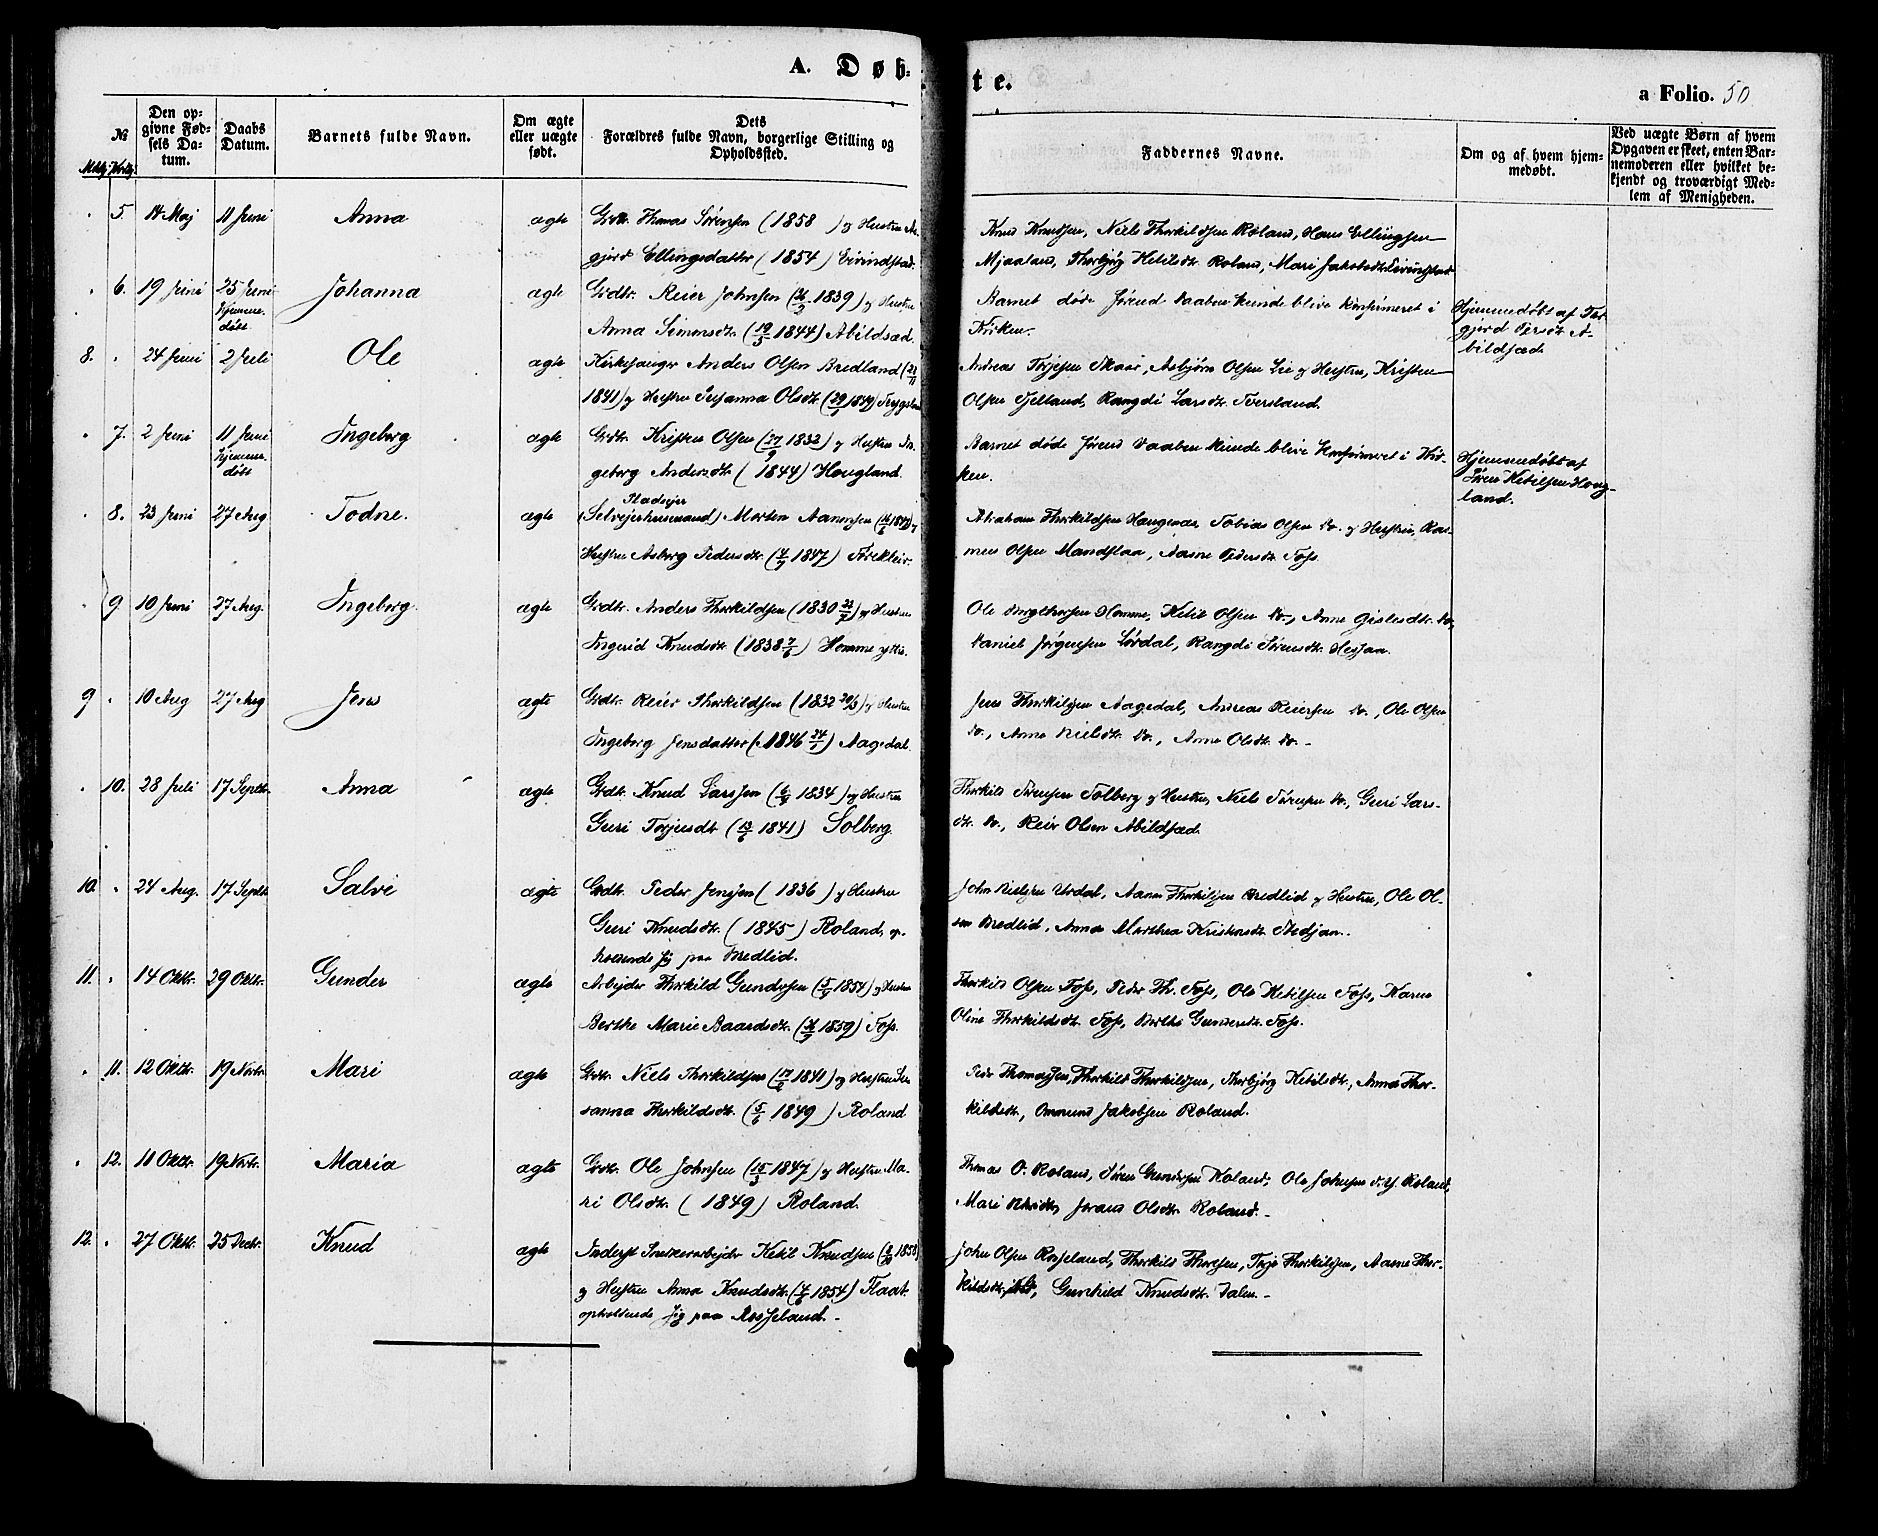 A. Døb-
te.
a Folio. 50
№
Mdkj. Kvdkj.
Den op-
givne Fød-
sels Da-
tum.
Daabs
Datum.
Barnets fulde Navn.
Om ægte
eller uægte
født.
Dets
Forældres fulde Navn, borgerlige Stilling og
Opholdssted.
Faddernes Navne.
Om og af hvem hjem-
medøbt.
Ved uægte Børn af hvem
Opgaven er skeet, enten Bar-
nemoderen eller hvilket be-
kjendt og troværdigt Med-
lem af Menigheden.
5. 14 Maj 11 Juni Anna ægte Grdtr. Thomas Sørensen (1858 ) og Hustru As-
gjerd Ellingsdatter (1854) Eivindstad.
Knud Knudsen, Niels Thorkildsen Roland, Hans Ellingsen
Mjaaland, Thorbjøg Ketilsdt. Roland, Mari Jakobsdt. Eivindstad
6. 19 Juni 25 Juni Johanna ægte Grdtr. Reier Johnsen (26/3 1839) og Hustru
Hjemme-
døbt.
Anna Simonsdt. (10/5 1844) Abildsæd.
Barnet døde førend Daaben kunde blive konfirmeret i
Kirken.
Hjemmedøbt af Tor-
gjerd Persdt. A-
bildsæd.
8. 24 Juni 2 Juli Ole ægte Kirkesanger Anders Olsen Bredland (21/11
1841) og Hustru Susanna Olsdt. (29/9 1849) Trygsland
Andreas Torjesen Skaar, Asbjørn Olsen Lie og Hustru, Kristen
Olsen Fjelland, Rangdi Larsdt. Tversland.
7. 2 Juni 11 Juni Ingeborg ægte Grdtr. Kristen Olsen (27/9 1832) og Hustru In-
hjemme-
døbt
geborg Andersdt. ( 1844) Hougland.
Barnet døde førend Daaben kunde blive konfirmeret i Kir-
ken.
Hjemmedøbt af
Søren Ketilsen Houg-
land.
8. 23 Juni 27 Aug Todne. ægte
Pladsejer
(Selvejerhusmand) Morten Aanensen
Hustru Asborg Pedersdt. (4/9 1847)
Abraham Thorkildsen Haugenes, Tobias Olsen Do. og Hustru, Ras-
mus Olsen Mandflaa, Aasne Pedersdt. Foss.
9. 10 Juni 27 Aug. Ingeborg ægte Grdtr. Anders Thorkildsen (1830 ) og Hustru
Ingerid Knudsdt. (1838 7/6) Homme
Ole Homme, Ketil Olsen Do., Anne Gislesdt. Do.,
Daniel Jørgensen Lørdal, Rangdi Sørensdt. Hesjaa.
9 10 Aug 27 Aug Jens ægte Grdtr. Reier Thorkildsen (1832 20/3) og Hustru
Ingeborg Jensdatter (1846 24/1) Aagedal.
Jens Thorkilsen Aagedal, Andreas Reiersen Do., Ole Olsen
Do., Anne Nielsdt. Do., Anne Olsdt. Do. -
10. 28 Juli 17 Septbr. Anna ægte Grdtr. Knud Larssen (6/9 1834) og Hustru
Guri Torjusdt (12/6 1841) Solberg.
Thorkild Sørensen Solberg og Hustru, Niels Sørensen Do., Guri Lars-
dt. Do., Reier Olsen Abildsæd.
10. 24 Aug. 17 Septbr Salve ægte Grdtr. Peder Jenssen ( 1836 ) og Hustru
Guri Knudsdt. ( 1845 ) Roland, op-
holdende sig paa Bredlid.
John Nielsen Urdal, Aanen Thorkilsen Bredlid og Hustru, Ole Ol-
sen Bredlid, Anne Marthea Kristensdt. Stedjan.
11. 14 Oktbr. 29 Oktbr. Gunder ægte Arbejder Thorkild Gundersen (5/9 1854) og Hustru
Berthe Marie Baardsdt. (26/9 1859) Foss.
Thorkild Olsen Foss, Peder Th. Foss, Ole Ketilsen Foss, Karen
Oline Thorkildsdt. Foss, Berthe Gundersdt. Foss.
11. 12 Oktbr. 19 Novbr. Mari ægte Grdtr. Niels Thorkildsen (17/4 1841) og Hustru Su-
sanna Thorkildsdt. (5/6 1849) Roland
Peder Thomassen, Thorkild Thorkildsen, Thorbjørg Ketilsdt., Anna Thor-
kildsdt., Ommund Jakobsen Roland.
12. 11 Oktbr. 19 Novbr. Maria ægte Grdtr. Ole Johnsen (15/3 1847) og Hustru Ma-
ri Olsdt. ( 1849) Roland.
Thomas O. Roland, Søren Gundersen Roland, Ole Johnsen d. y. Roland,
Mari Nilsdt., Joran Olsdt. Roland. -
12. 27 Oktbr. 25 Decbr. Knud ægte Inderst Snekkerarbejder Ketil Knudsen
og Hustru Anna Knudsdt. (4/6 1854) Flaat
opholdende sig paa Rosseland. -
John Olsen Rosseland, Thorkild Thorsen, Terje Thorkilsen, Aasne Thor-
kildsdt., Gunhild Knudsdt. Dalen. -